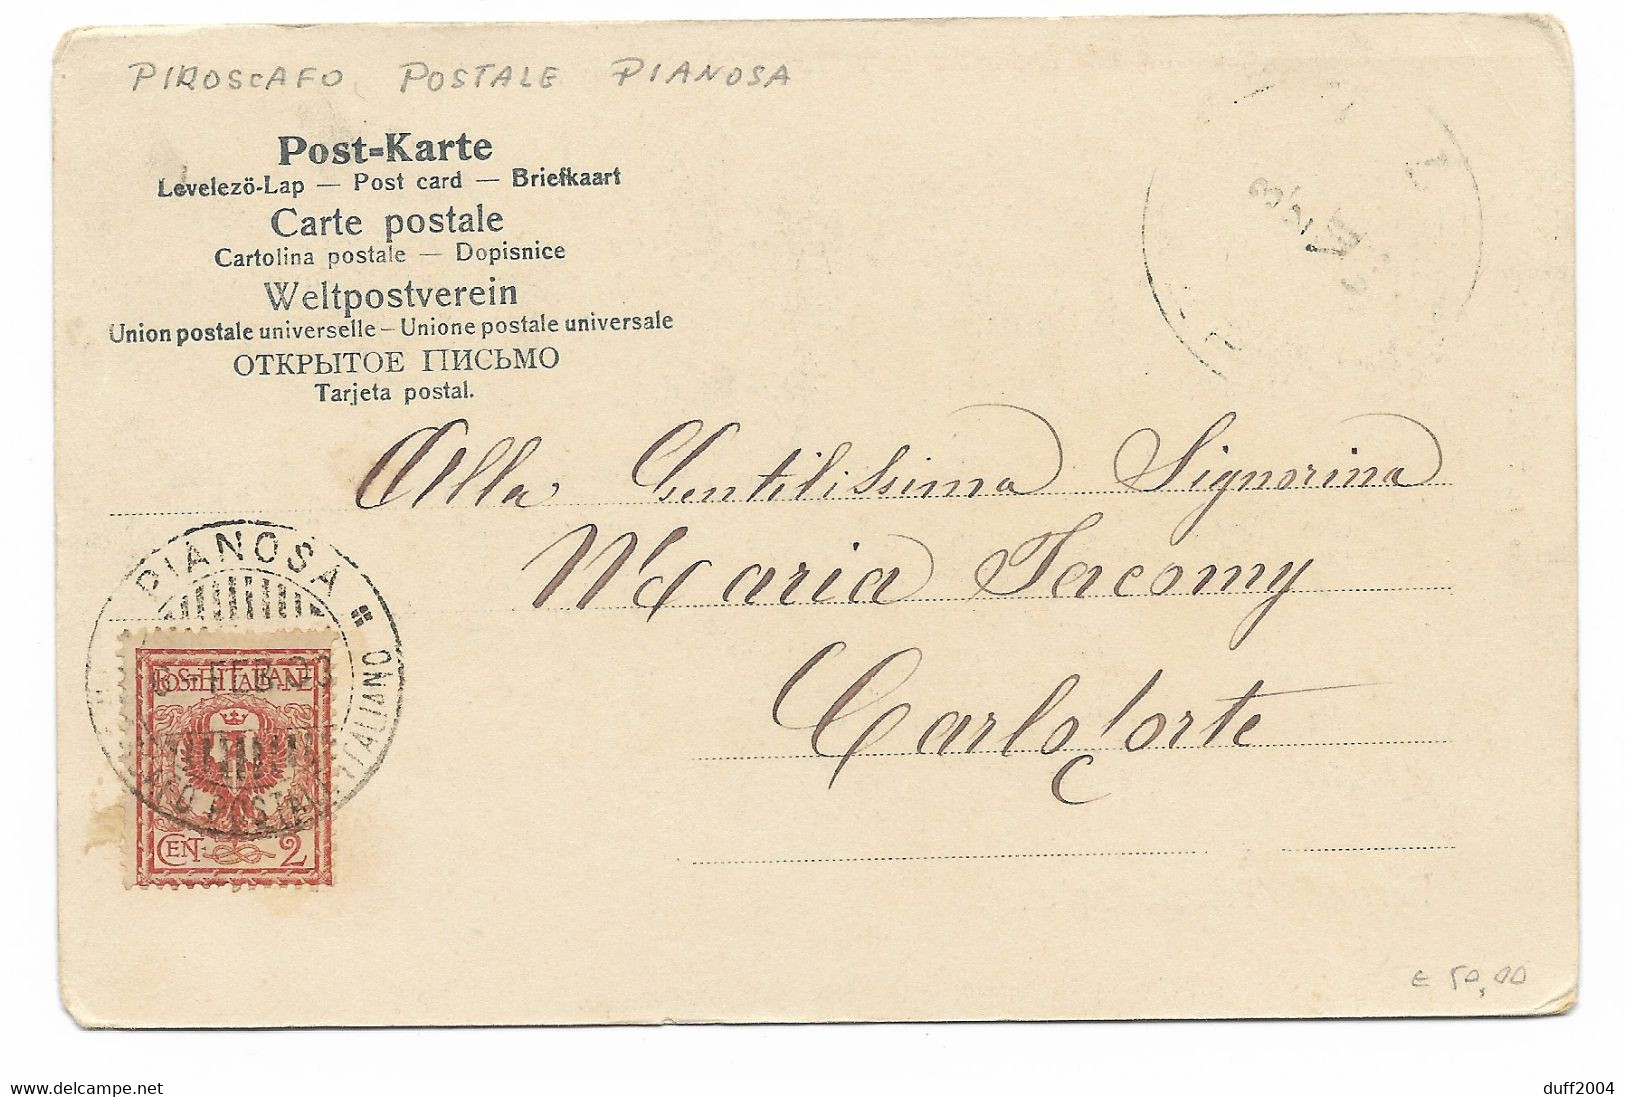 PIROSCAFO POSTALE PIANOSA
Post-Karte
Levelezö-Lap — Post card — Briefkaart
Carte postale
Cartolina postale — Dopisnice
Weltpostverein
Union postale universelle – Unione postale universale
ОТКРЫТОЕ ПИСЬМО
Tarjeta postal.
Alla Gentilissima Signorina
Maria Jacomy
Carloforte
PIANOSA
FEB. 03
POSTALE ITALIANO
POSTE ITALIANE
CENT. 2
€ 50,00
www.delcampe.net
duff2004